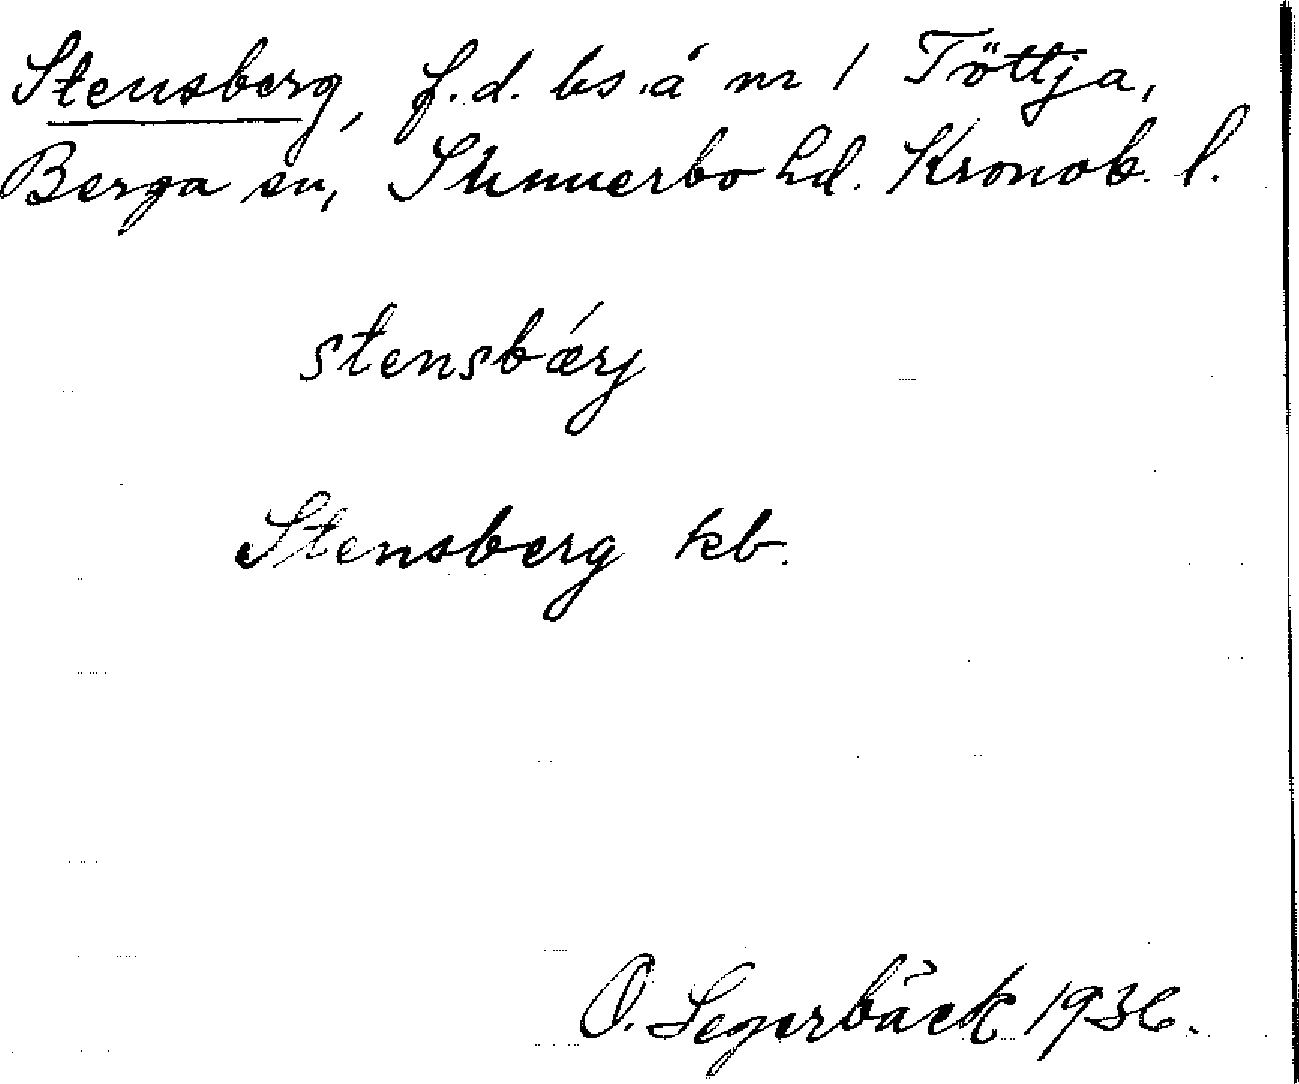 Stensberg, f.d. bs. å nr 1 Töttja,
Berga sn, Sunnerbo hd. Kronob. l.
stensbǽrj
Stensberg kb.
O. Segerbäck 1936.